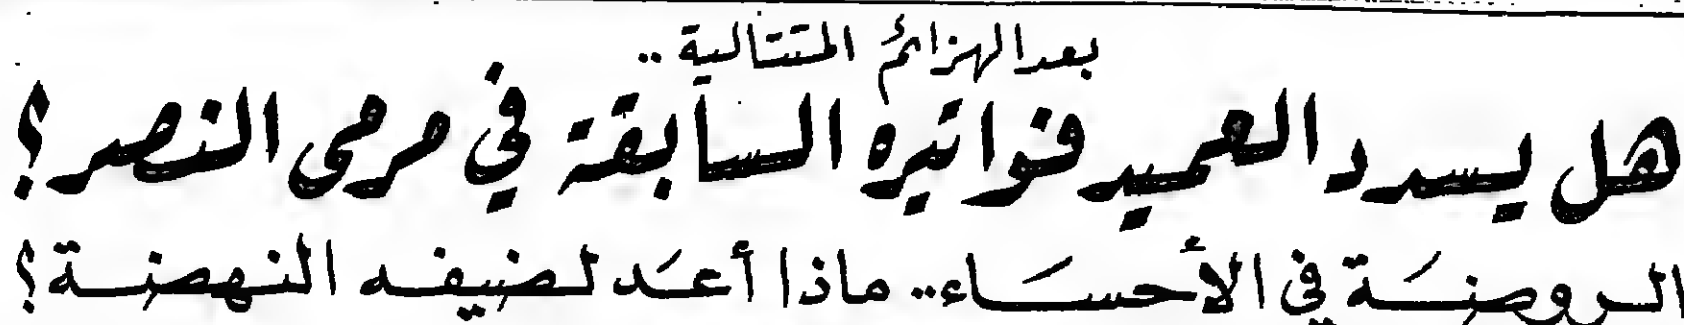 بعد الهزائم المتتالية ..
هل يسدد العميد فواتيره السابقة في مرمى النصر ؟
الروضة في الأحساء .. ماذا أعد لضيفه النهضة ؟